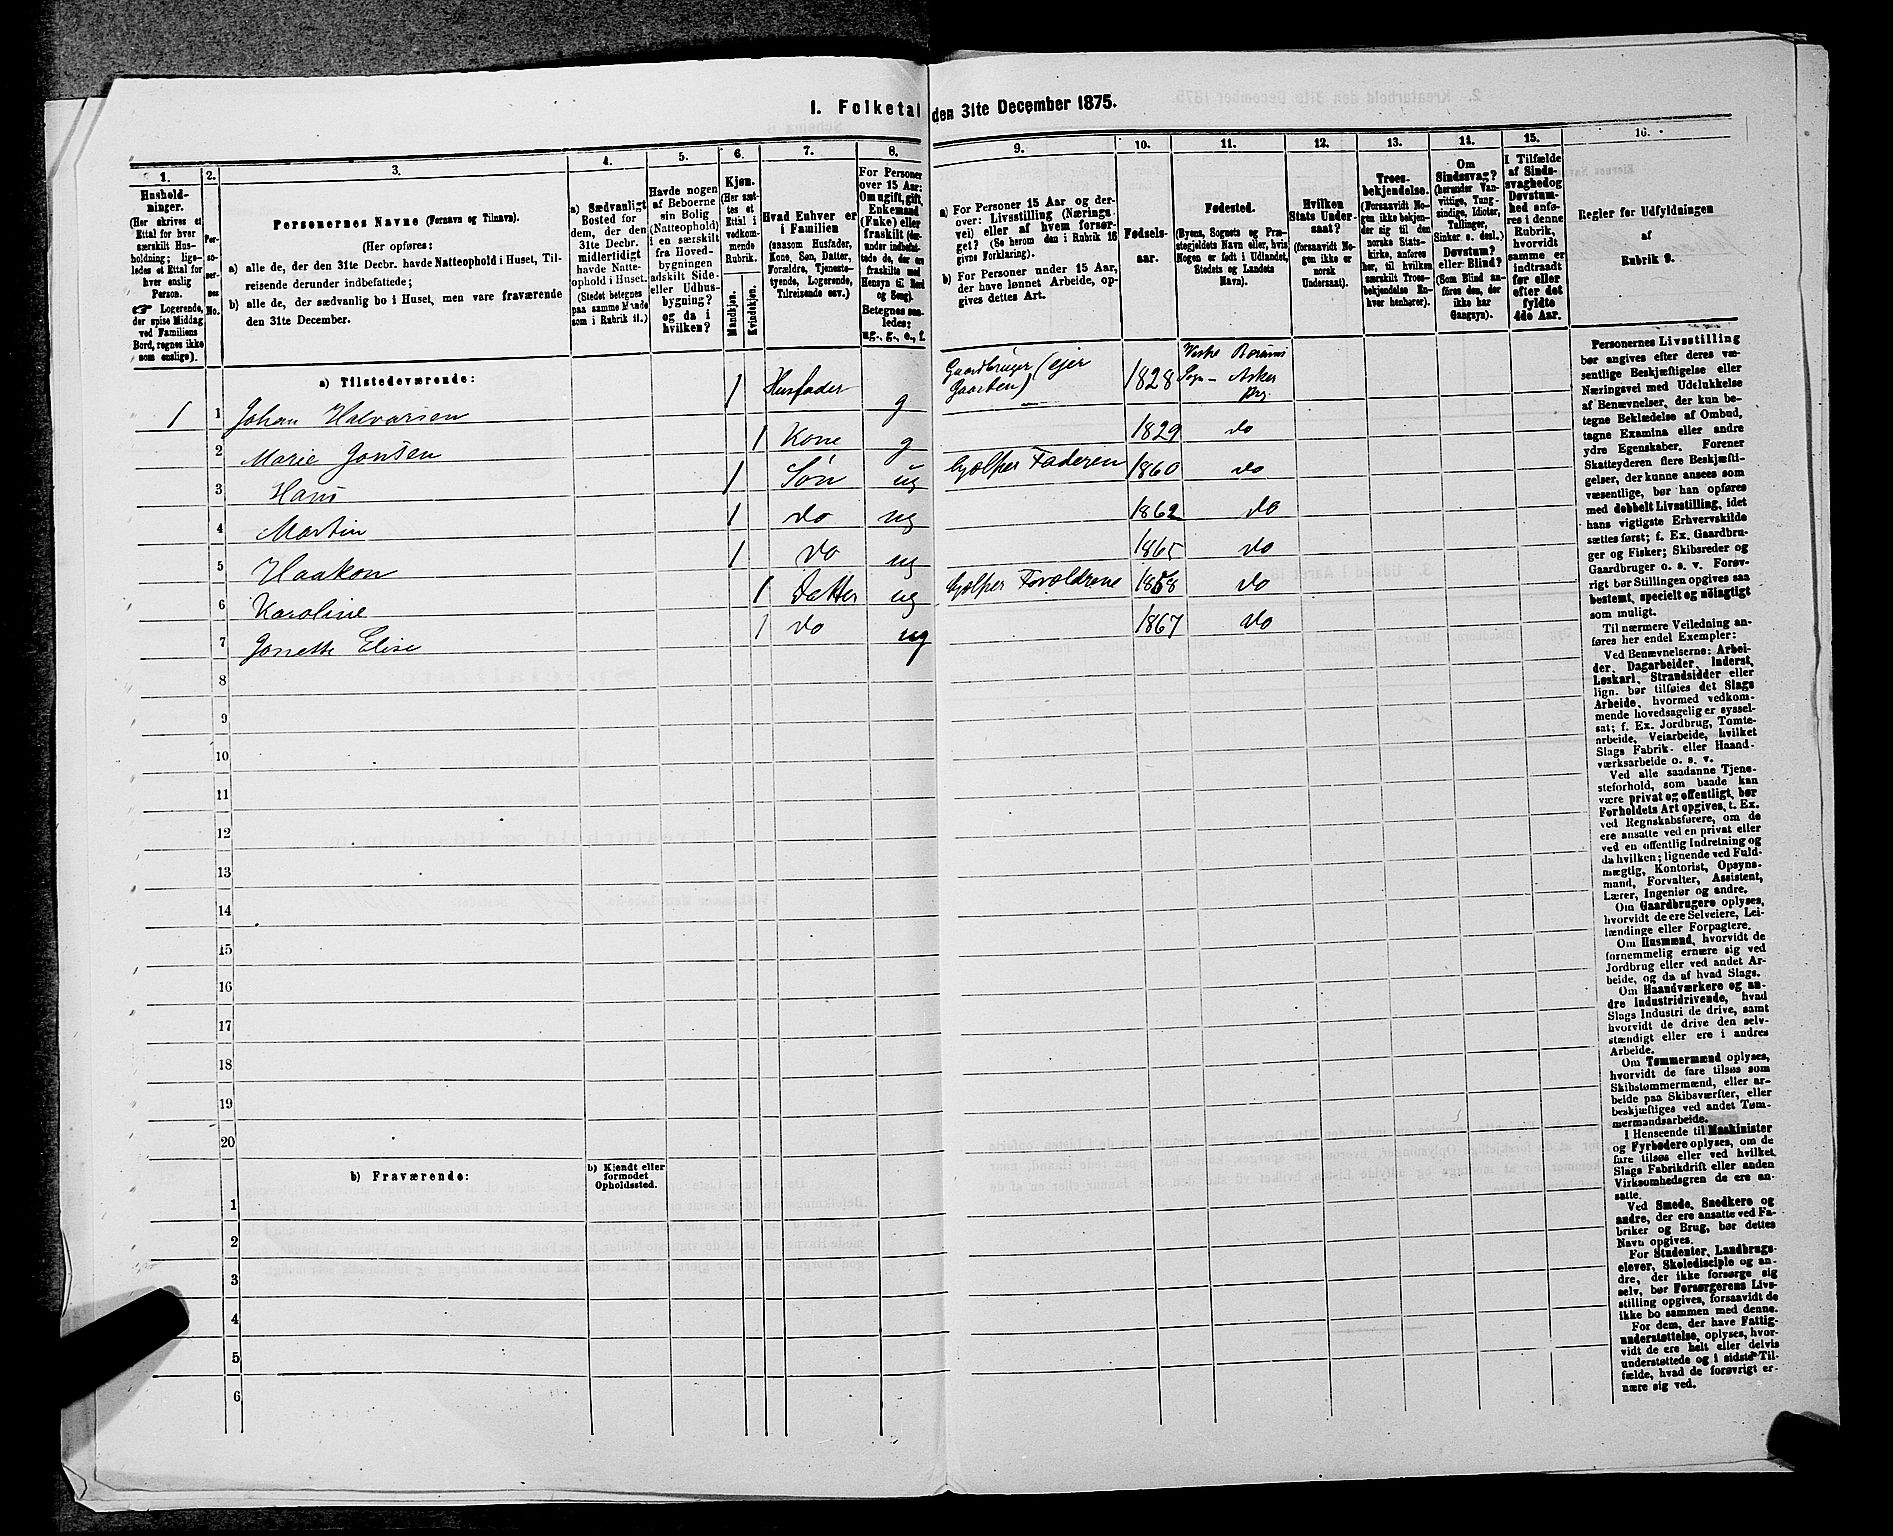 I. Folketal den 31te December 1875.
1.
2.
3.
4.
5.
6.
7.
8.
9.
10.
11.
12.
13.
14.
15.
16.
Hushold-
ninger.
(Her skrives et
Ettal for hver
særskilt Hus-
holdning; lige-
ledes et Ettal for
hver enslig
Person.
☞ Logerende,
der spise Middag
ved Familiens
Bord, regnes ikke
som enslige).
Per-
so-
ner-
nes
No.
Personernes Navne (Fornavn og Tilnavn).
(Her opføres:
a) alle de, der den 31te Decbr. havde Natteophold i Huset, Til-
reisende derunder indbefattede;
b) alle de, der sædvanlig bo i Huset, men vare fraværende
den 31te December.
a) Sædvanligt
Bosted for
dem, der den
31te Decbr.
midlertidigt
havde Natte-
ophold i Huset.
(Stedet betegnes
paa samme Maade
som i Rubrik 11.)
Havde nogen
af Beboerne
sin Bolig
(Natteophold)
i en særskilt
fra Hoved-
bygningen
adskilt Side-
eller Udhus-
bygning?
og da i
hvilken?
Kjøn.
(Her sæt-
tes et
Ettal i
vedkom-
mende
Rubrik.
Mandkjøn.
Kvindekjøn.
Hvad Enhver er
i Familien
(saasom Husfader,
Kone, Søn, Datter,
Forældre, Tjeneste-
tyende, Logerende,
Tilreisende osv.)
For Personer
over 15 Aar:
Om ugift, gift,
Enkemand
(Enke) eller
fraskilt (her-
under indbefat-
tede de, der ere
fraskilte med
Hensyn til Bord
og Seng).
Betegnes saa-
ledes:
ug., g., e., f.
a) For Personer 15 Aar og der-
over: Livsstilling (Nærings-
vei) eller af hvem forsør-
get? (Se herom den i Rubrik 16
givne Forklaring).
b) For Personer under 15 Aar,
der have lønnet Arbeide, op-
gives dettes Art.
Fødsels-
aar.
Fødested.
(Byens, Sognets og Præ-
stegjeldets Navn eller, hvis
Nogen er født i Udlandet,
Stedets og Landets
Navn).
Hvilken
Stats Under-
saat?
(forsaavidt No-
gen ikke er
norsk
Undersaat).
Troes-
bekjendelse.
(Forsaavidt No-
gen ikke bekjen-
der sig til den
norske Stats-
kirke, anføres
her, til hvilken
særskilt Troes-
bekjendelse En-
hver henhører).
Om
Sindssvag?
(herunder Van-
vittige, Tung-
sindige, Idioter,
Tullinger,
Sinker o. desl.)
Døvstum?
eller Blind?
(Som Blind an-
føres den, der
ikke har
Gangsyn).
I Tilfælde
af Sinds-
svaghed og
Døvstum-
hed anfø-
res i denne
Rubrik,
hvorvidt
samme er
indtraadt
før eller
efter det
fyldte
4de Aar.
Regler for Udfyldningen
af
Rubrik 9.
a) Tilstedeværende:
1 1 Johan Halvorsen 1 Husfader g Gaardbruger (ejer Gaarden) 1828 Vestre Bærums Sogn - Asker Prg.
2 Marie Jonsen 1 Kone g 1829 do
3 Hans 1 Søn ug hjælper Faderen 1860 do
4 Martin 1 do ug 1862 do
5 Haakon 1 do ug 1865 do
6 Karoline 1 Datter ug hjælper Forældrene 1858 do
7 Jonette Elise 1 do ug 1867 do
8
9
10
11
12
13
14
15
16
17
18
19
20
b) Fraværende:
b) Kjendt eller
formodet
Opholdssted.
1
2
3
4
5
6
Personernes Livsstilling
bør angives efter deres væ-
sentlige Beskjæftigelse eller
Næringsvei med Udelukkelse
af Benævnelser, der kun be-
tegne Beklædelse af Ombud,
tagne Examina eller andre
ydre Egenskaber. Forener
Skatteyderen flere Beskjæfti-
gelser, der kunne ansees som
væsentlige, bør han opføres
med dobbelt Livsstilling, idet
hans vigtigste Erhvervskilde
sættes først; f. Ex. Gaardbru-
ger og Fisker; Skibsreder og
Gaardbruger o. s. v. Forøv-
rigt bør Stillingen opgives saa
bestemt, specielt og nöiagtigt
som muligt.
Til nærmere Veiledning an-
føres her endel Exempler:
Ved Benævnelserne: Arbei-
der, Dagarbeider, Inderst,
Løskarl, Strandsidder eller
lign. bør tilføies det Slags
Arbeide, hvormed vedkom-
mende hovedsagelig er syssel-
sat; f. Ex. Jordbrug, Tomte-
arbeide, Veiarbeide, hvilket
Slags Fabrik- eller Haand-
værksarbeide o. s. v.
Ved alle saadanne Tjene-
steforhold, som baade kan
være privat og offentligt, bør
Forholdets Art opgives, t. Ex.
ved Regnskabsførere, om de
ere ansatte ved en privat eller
ved en offentlig Indretning og
da hvilken; lignende ved Fuld-
mægtig, Kontorist, Opsyns-
mand, Forvalter, Assistent,
Lærer, Ingeniør og andre.
Om Gaardbrugere oplyses,
hvorvidt de ere Selveiere, Lei-
lændinge eller Forpagtere.
Om Husmænd, hvorvidt de
fornemmelig ernære sig ved
Jordbrug eller ved andet Ar-
beide, og da af hvad Slags.
Om Haandværkere og an-
dre Industridrivende, hvad
Slags Industri de drive, samt
hvorvidt de drive den selv-
stændigt eller ere i andres
Arbeide.
Om Tømmermænd oplyses,
hvorvidt de fare tilsøs som
Skibstømmermænd, eller ar-
beide paa Skibsværfter, eller
beskjæftiges ved andet Tøm-
mermandsarbeide.
I Henseende til Maskinister
og Fyrbødere oplyses, om de
fare tilsøs eller ved hvilket
Slags Fabrikdrift eller anden
Virksomhedsgren de ere an-
satte.
Ved Smede, Snedkere og
andre, der ere ansatte ved Fa-
briker og Brug, bør dettes
Navn opgives.
For Studenter, Landbrugs-
elever, Skoledisciple og an-
dre, der ikke forsørge sig
selv, bør Forsørgerens Livs-
stilling opgives, forsaavidt de
ikke bo sammen med denne.
For dem, der have Fattig-
understøttelse, oplyses, hvor-
vidt de ere helt eller delvis
understøttede og i sidste Til-
fælde, hvad de forøvrigt er-
nære sig ved.